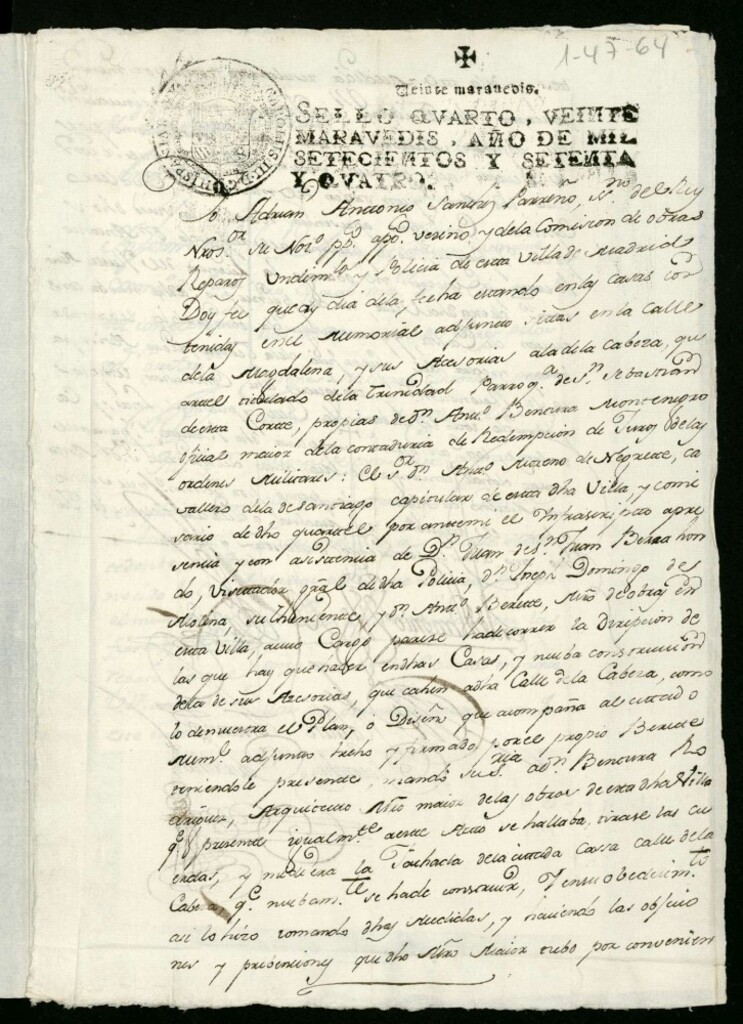 1-47-64
Veinte marauedis.
SELLO QVARTO, VEINTE
MARAVEDIS, AÑO DE MIL
SETECIENTOS Y SETENTA
Y QVATRO.
Yo Adrian Antonio Sanchez Parreño, ss.no del Rey
Nro s.or su Not.o pp.co app.co vezino, y de la Comision de obras
Reparos y Policia de esta Villa de Madrid
Doy fee que oy dia dela fecha estando en las casas con
tenidas en el Memorial adjunto sitas en la Calle
dela Magdalena, y sus Acesorias ala dela Cabeza, que
artel titulado dela trinidad Parroq.a de S.n Sebastian
de esta Corte, propias de D.n Ant.o Bentura Montenegro
oficial maior dela contaduria de Redempcion de Juros delas
ordenes Militares: El s.or D.n Ant.o Moreno de Negrete, ca
vallero dela de santiago capitular de esta dha Villa, y comi
sario de dho quartel por antemi el Infrascripto apre
sencia y con asistencia de D.n Juan de S.n Juan Berrahon
do, Visitador gral de dha Policia, D.n Joseph Domingo de
Molina, su theniente, y D.n Ant.o Berete, Mro de obras en
esta Villa, a cuio Cargo parece hade correr la Direpcion de
las que hay que hazer en dhas Casas, y nueba construccion
dela de sus Acesorias, que cahen adha Calle dela Cabeza, como
lo demuestra el Plan, ó Diseño que acompaña al citado
Mem.l adjunto hecho y firmado por el propio Berete
teniendole presente, mandó su s.ria a D.n Bentura Ro
driguez, Arquitecto Mro maior delas obras de esta dha Villa
q.e presente igualm.te a este Acto se hallaba, tirase las cu
erdas, y midiera la fachada dela citada Casa calle dela
Cabeza, q.e nuebam.te se hade construir, Y en su obedecim.to
asi lo hizo tomando dhas medidas, y haviendo las obserbacio
nes y prebenciones que dho Mro Maior tubo por convenien